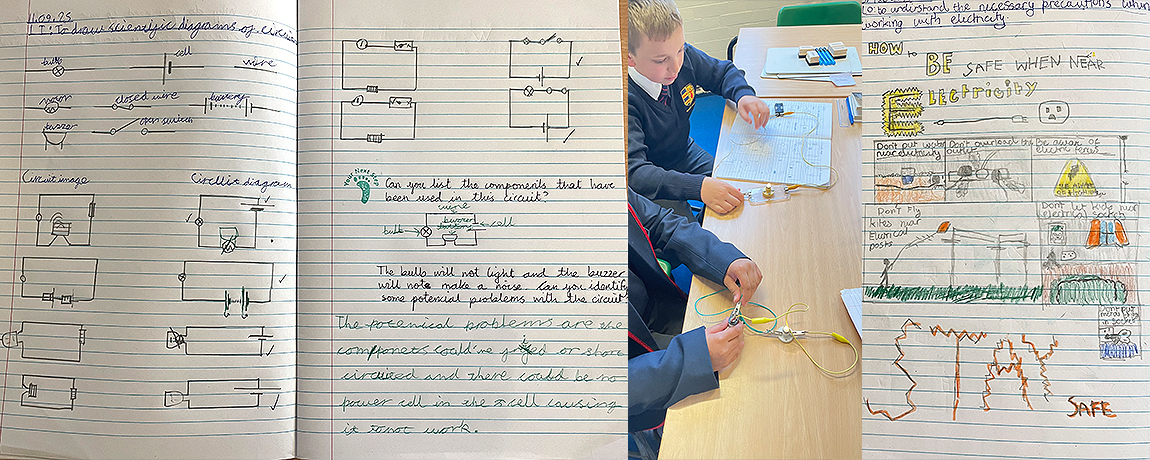 11.09.25
LI: To draw scientific diagrams of circuits
bulb cell wire
motor closed wire battery
buzzer open switch
Circuit image Circuit diagram
Your Next Step
Can you list the components that have
been used in this circuit?
wire
buzzer
bulb cell
The bulb will not light and the buzzer
will not make a noise. Can you identify
some potencial problems with the circuit?
The potencial problems are the
componets could've or short
circuited and there could be no
power cell in the cell causing
it to not work.
LO: to understand the necessary precautions when
working with electricity.
HOW to BE SAFE WHEN NEAR
ELECTRICITY
Don't put water
near electricity
Don't overload the
outlet
Be aware of
electric fences
Don't Fly
kites near
Eletrical
posts
Don't let kids near
electrical sockets
Dont put
metal
in socket
STAY
SAFE